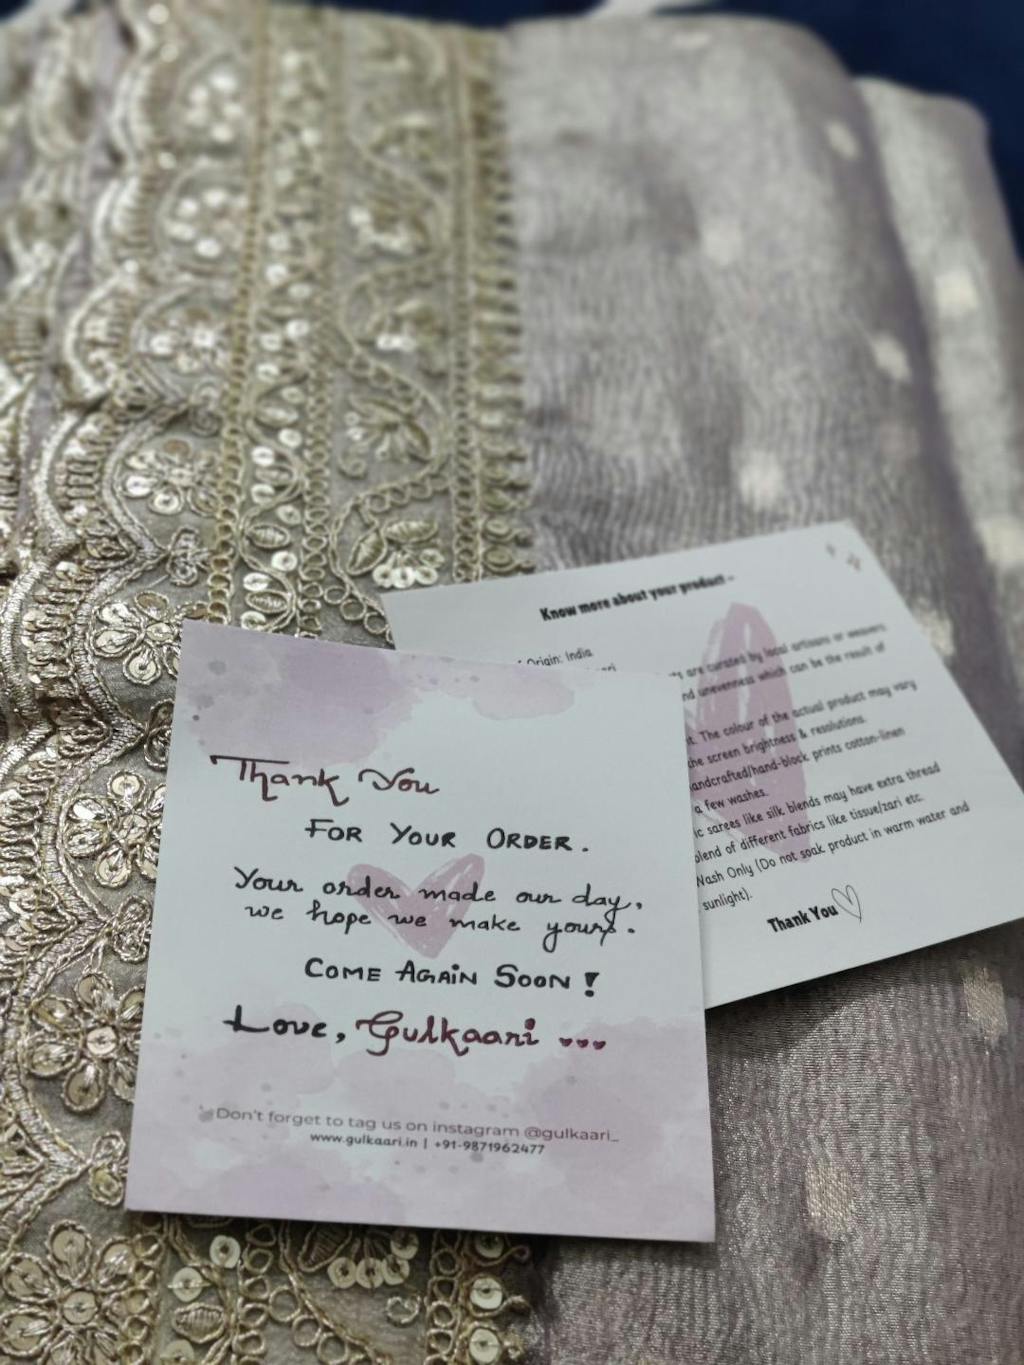 Thank You
FOR YOUR ORDER.
Your order made our day,
we hope we make yours.
COME AGAIN SOON!
Love, Gulkaari ...
Don't forget to tag us on instagram @gulkaari_
www.gulkaari.in | +91-9871962477
Know more about your product -
Origin: India
are curated by local artisans or weavers
unevenness which can be the result of
The colour of the actual product may vary
screen brightness & resolutions.
prints cotton-linen
a few washes.
sarees like silk blends may have extra thread
blend of different fabrics like tissue/zari etc.
Wash Only (Do not soak product in warm water and
sunlight).
Thank You